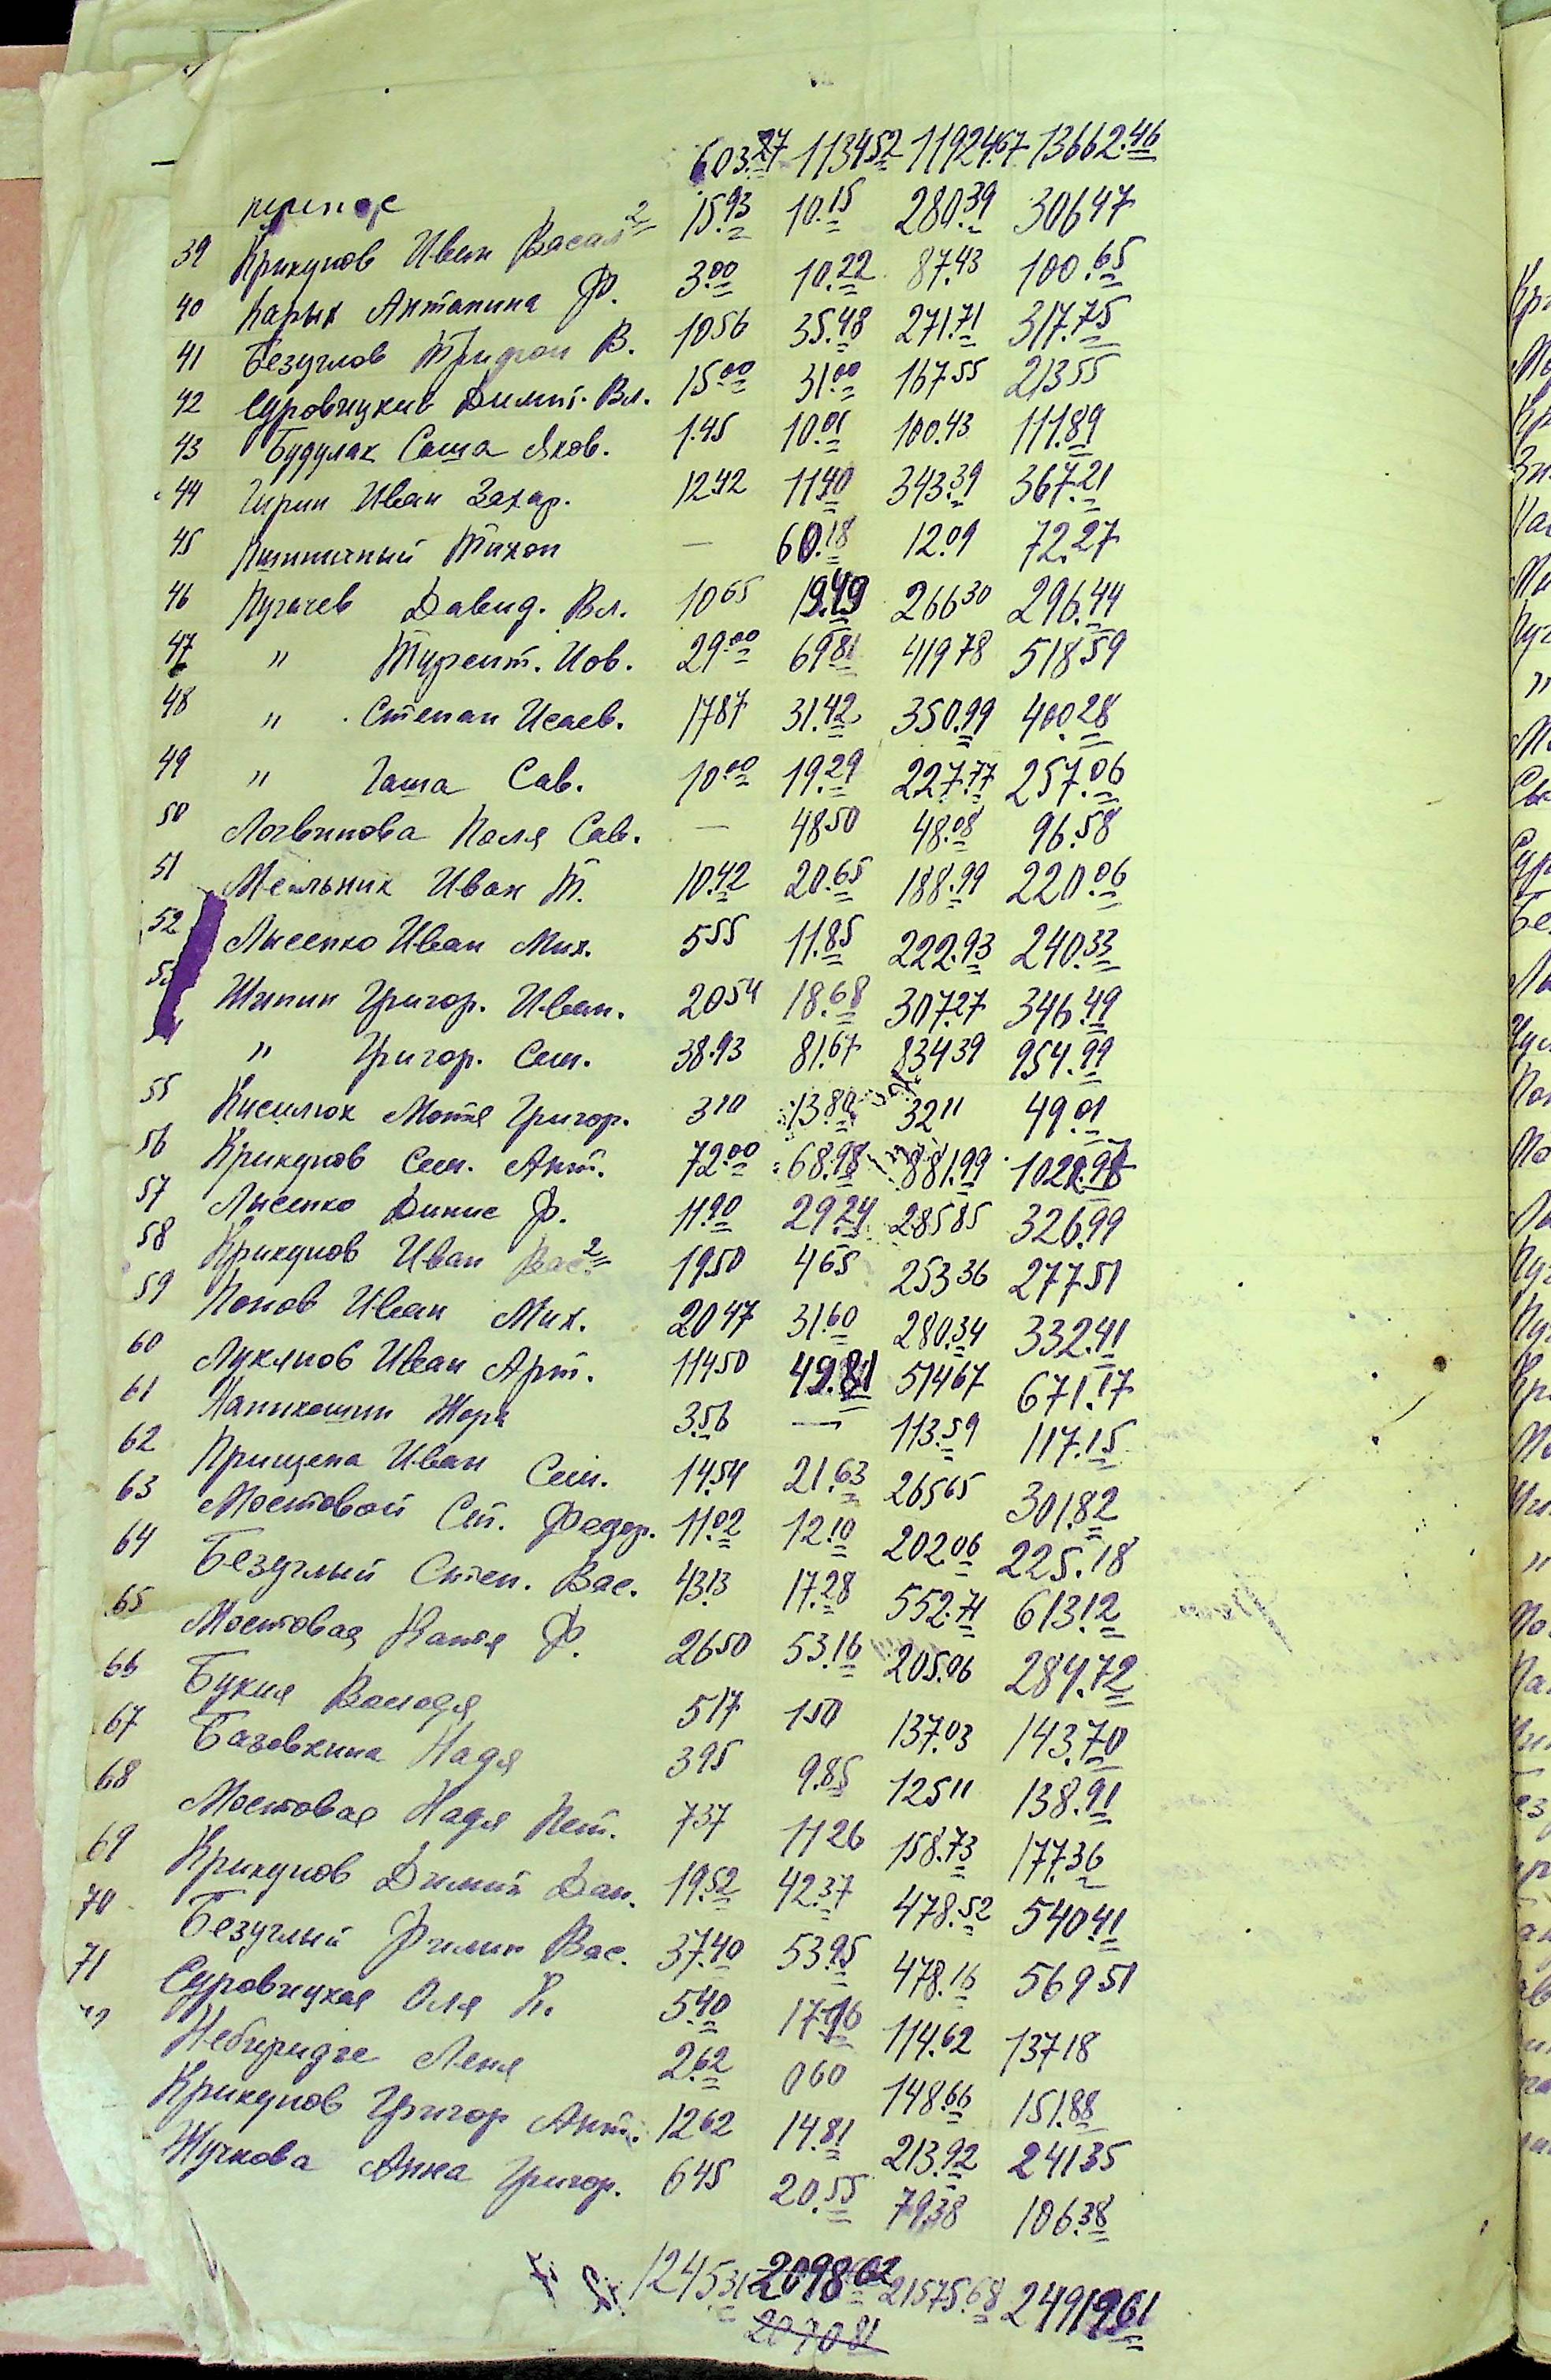 603.27 1134 52 11924.67 13662.46
39 Крикунов Иван Васил 2 15.93 10.15 280.39 306 47
40 Карых Антонина Ф. 3.00 10.22 87.43 100.65
41 Безуглов Трифон В. 10 56 35.48 271.71 317.75
42 Суровицкий Димит. Вл. 15.00 31.00 167 55 213 55
43 Будулак Саша Яков. 1.45 10.01 100.43 111.89
44 Чирин Иван Захар. 12 42 11 40 343.39 367.21
45 Пшиничный Тихон — 60.18 12.09 72.27
46 Пугачев Давид. Вл. 10 65 19.49 266 30 296.44
47 " Турент. Иов. 29.00 69 81 419 78 518 59
48 " Степан Исаев. 17 87 31.42 350.99 400 28
49 " Гаша Сав. 10 00 19.29 227.77 257.06
50 Логвинова Поля Сав. — 48 50 48.08 96.58
51 Мельник Иван Т. 10.42 20.65 188.99 220.06
52 Лысенко Иван Мих. 5 55 11.85 222.93 240.33
53 Шипин Григор. Иван. 20 54 18.68 307.27 346.49
54 " Григор. Сем. 38.93 81.67 834 39 954.99
55 Кисилюк Мотя Григор. 3 10 13.80 32 11 49.01
56 Крикунов Сем. Ант. 72.00 68.98 881.99
57 Лысенко Динис Ф. 11.90 29.24 285 85 326.99
58 Крикунов Иван Вас. 2 19 50 4 65 253 36 277.51
59 Попов Иван Мих. 20 47 31.60 280.34 332.41
60 Лукянов Иван Арт. 114 50 49.81 514 67 671.17
61 Жора 3.56 — 113.59 117.15
62 Прищепа Иван Сем. 14.54 21.63 265 65 301.82
63 Мостовой Ст. Федор. 11.02 12.10 202.06 225.18
64 Безуглый Степ. Вас. 43.13 17.28 552.71 613.12
65 Мостовая Катя Ф. 26 50 53.16 205.06 284.72
66 Букия Володя 5 17 1 50 137.03 143.70
67 Базовкина Надя 3 95 9.85 125 11 138.91
68 Мостовая Надя Пет. 7 37 11 26 158.73 177.36
69 Крикунов Димит Дан. 19.52 42.37 478.52 540.41
70 Безуглый Филип Вас. 37.40 53.95 478.16 569 51
71 Суровицкая Оля К. 5.40 17.16 114.62 137 18
Леня 2.62 0 60 148.66 151.88
Крикунов Григор Ант. 12 62 14.81 213.92 241 35
Жучкова Анна Григор. 6 45 20.55 79.38 106.38
1245.31 2098 62 21575.68 24919 61
2070 81